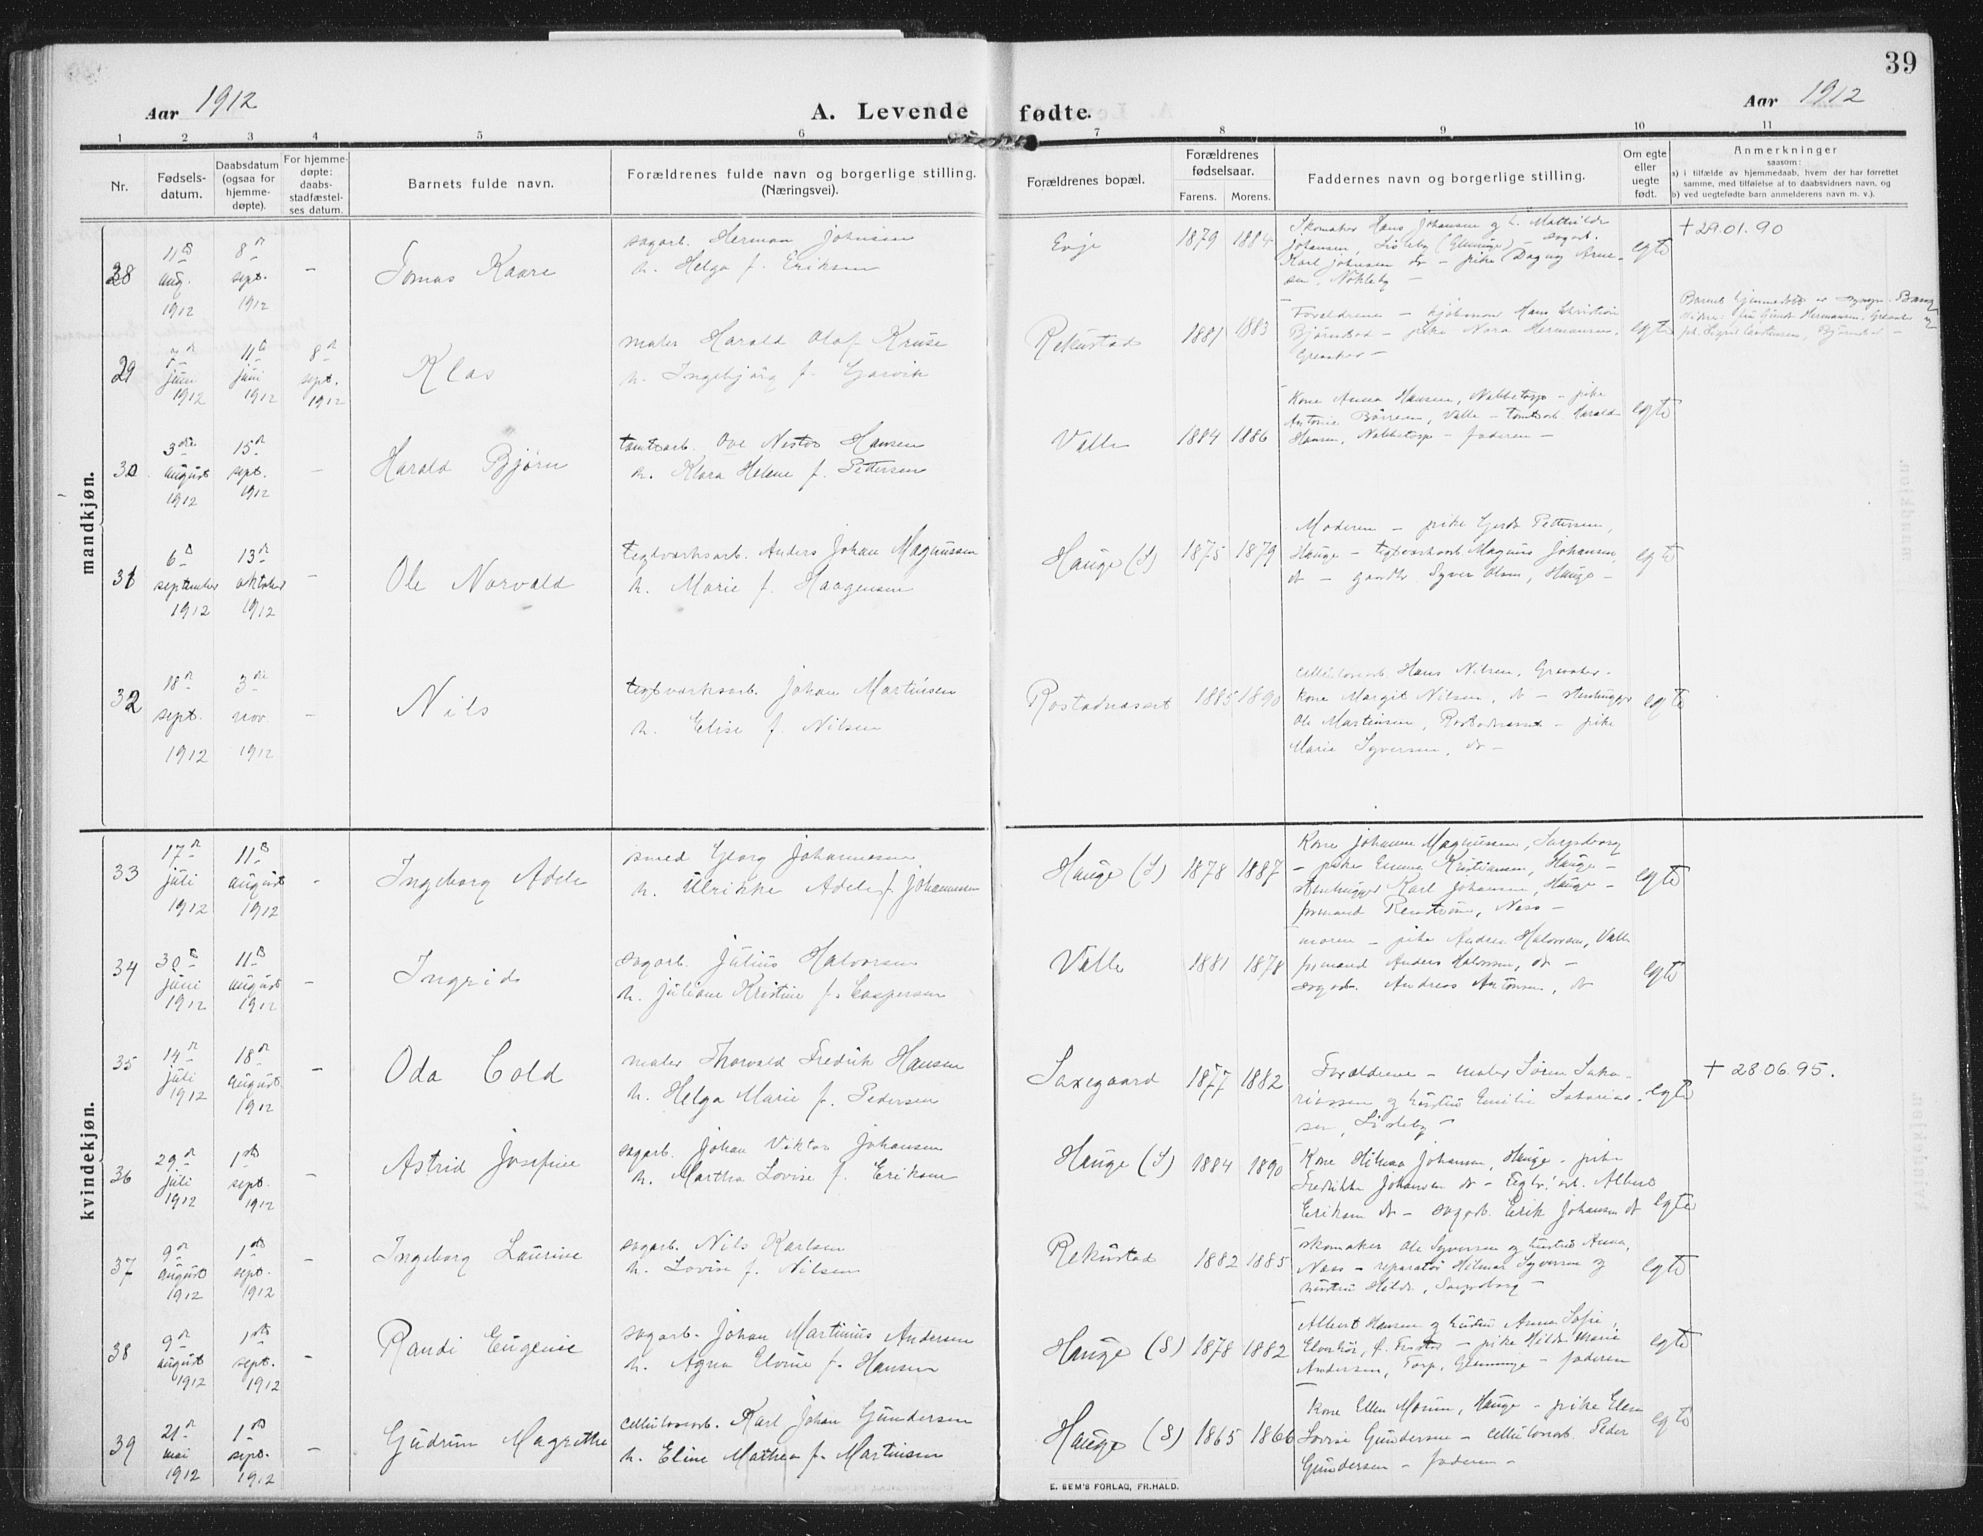 39
Aar 1912
A. Levende fødte.
Aar 1912
1 2 3 4 5 6 7 8 9 10 11
Nr.
Fødsels-
datum.
Daabsdatum
(ogsaa for
hjemme-
døpte).
For hjemme-
døpte:
daabs-
stadfæstel-
ses datum.
Barnets fulde navn.
Forældrenes fulde navn og borgerlige stilling.
(Næringsvei).
Forældrenes bopæl.
Forældrenes
fødselsaar.
Farens. Morens.
Faddernes navn og borgerlige stilling.
Om egte
eller
uegte
født.
Anmerkninger
saasom:
a) i tilfælde av hjemmedaab, hvem der har forrettet
samme, med tilføielse af to daabsvidners navn, og
b) ved uegtefødte barn anmelderens navn m. v.).
mandkjøn.
28
11
aug.
1912
8
sept.
1912
-
Tomas Kaare
sagarb. Herman Johnsen
h. Helga f. Eriksen
Evje
1879 1884
Skomaker Hans Johansen og h. Mathilde
Johansen, Lisleby (Glemminge) - sagarb.
Karl Johnsen do - pike Dagny Arne-
sen, Nokleby -
egte
+ 29.01.90
29
juni
1912
11
juni
1912
8
sept.
1912
Klas
maler Harald Olaf Kruse
h. Ingebjørg f. Gjorvik
Rekustad
1881 1883
Forældrene - Hans Christian
Bjørnstad - pike Nora Hermansen,
Greaker -
egte
30
3
august
1912
15
sept.
1912
-
Harald Bjørn
tomtearb. Ove Nestor Hansen
h. Klara Helene f. Pettersen
Valle
1884 1886
Kone Anna Hansen, Nabbetorp - pike
Antonie Børresen, Valle - tomtearb. Harald
Hansen, Nabbetorp - faderen -
egte
31
6
september
1912
13
oktober
1912
-
Ole Norvald
teglverksarb. Anders Johan Magnussen
h. Marie f. Haagensen
Hauge (S)
1875 1879
Moderen - pike Gerda Pettersen,
Hauge - teglverksarb Magnus Johansen,
do - gaardbr. Syver Olsen, Hauge -
egte
32
18
sept.
1912
3
nov.
1912
-
Nils
teglverksarb. Johan Martinsen
h. Elise f. Nilsen
Rostadnæsset
1885 1890
cellulosearb Hans Nilsen, Greaker -
Kone Margit Nilsen, do - stenhugger
Ole Martinsen, Rostadnæsset - pike
Marie Syversen, do -
egte
kvindekjøn.
33
17
juli
1912
11
august
1912
-
Ingeborg Adele
smed Georg Johannesen
h. Ulrikke Adele f. Johannesen
Hauge (S)
1878 1887
Kone Johanne Magnussen, Sarpsborg
- pike Emma Kristiansen, Hauge -
stenhugger Karl Johansen, Hauge -
formand Renstrøm, Næs -
egte
34
30
juni
1912
11
august
1912
-
Ingrid
sagarb. Julius Halvorsen
h. Juliane Kristine f. Caspersen
Valle
1881 1878
moren - pike Andrea Halvorsen, Valle
formand Anders Halvorsen, do -
sagarb. Andreas Antonsen, do
egte
35
14
juli
1912
18
august
1912
-
Oda Cold
maler Thorvald Fredrik Hansen
h. Helga Marie f. Pedersen
Saxegaard
1877 1882
Forældrene - maler Søren Saka-
riassen og hustru Emilie Sakarias-
sen, Lisleby -
egte
+ 28.06.95.
36
29
juli
1912
1
sept.
1912
-
Astrid Josefine
sagarb. Johan Viktor Johansen
h. Martha Lovise f. Eriksen
Hauge (S)
1884 1890
Kone Hilma Johansen, Hauge - pike
Fredrikke Johansen do - Teglv.arb. Albert
Eriksen do - sagarb. Erik Johansen do
egte
37
9
august
1912
1
sept.
1912
-
Ingeborg Laurine
sagarb. Nils Karlsen
h. Lovise f. Nilsen
Rekustad
1882 1885
skomaker Ole Syversen og hustru Anna,
Næss - reparatør Hilmar Syversen og
hustru Hilda, Sarpsborg -
egte
38
9
august
1912
1
sept.
1912
-
Randi Eugenie
sagarb. Johan Martinius Andersen
h. Agna Elvine f. Hansen
Hauge (S)
1878 1882
Albert Hansen og hustru Anna Sofie,
- pike Hilda Marie
Andersen, Torp, Glemminge - faderen
egte
39
21
mai
1912
1
sept.
1912
-
Gudrun Magrethe
cellulosearb. Karl Johan Gundersen
h. Eline Mathea f. Martinsen
Hauge (S)
1865 1866
Kone Ellen Moum, Hauge - pike Elen
Lovise Gundersen - cellulosearb Peder
Gundersen - faderen -
egte
E. SEM'S FORLAG, FR.HALD.